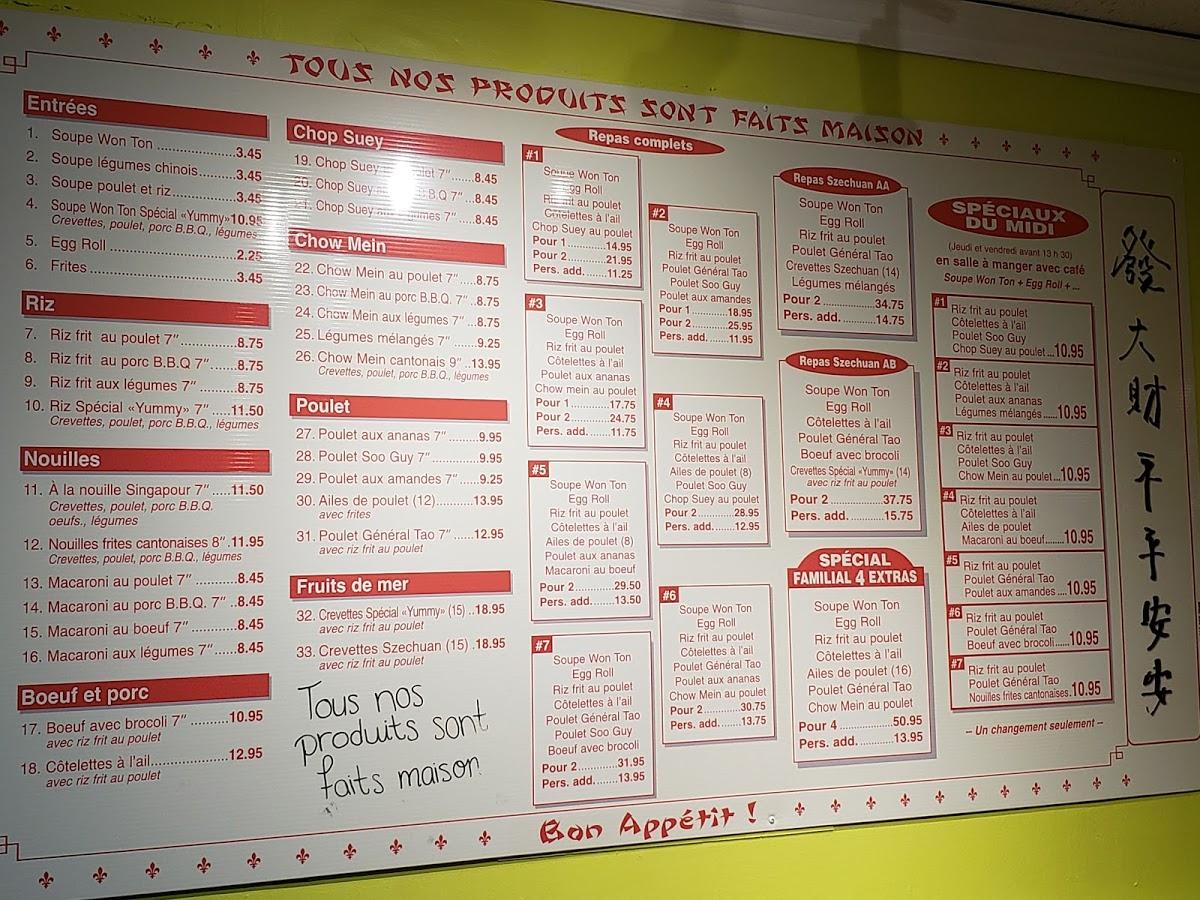 TOUS NOS PRODUITS SONT FAITS MAISON
Entrées
1. Soupe Won Ton ....................3.45
2. Soupe légumes chinois..........3.45
3. Soupe poulet et riz.................3.45
4. Soupe Won Ton Spécial «Yummy»10.95
Crevettes, poulet, porc B.B.Q., légumes
5. Egg Roll ..............................2.25
6. Frites ..................................3.45
Riz
7. Riz frit au poulet 7" ..............8.75
8. Riz frit au porc B.B.Q 7" ......8.75
9. Riz frit aux légumes 7" .........8.75
10. Riz Spécial «Yummy» 7" ....11.50
Crevettes, poulet, porc B.B.Q., légumes
Nouilles
11. À la nouille Singapour 7"....11.50
Crevettes, poulet, porc B.B.Q.
oeufs., légumes
12. Nouilles frites cantonaises 8".11.95
Crevettes, poulet, porc B.B.Q., légumes
13. Macaroni au poulet 7" .......8.45
14. Macaroni au porc B.B.Q. 7" ..8.45
15. Macaroni au boeuf 7"..........8.45
16. Macaroni aux légumes 7".....8.45
Boeuf et porc
17. Boeuf avec brocoli 7" .........10.95
avec riz frit au poulet
18. Côtelettes à l'ail..................12.95
avec riz frit au poulet
Chop Suey
19. Chop Suey 7".....8.45
20. Chop Suey B.B.Q 7" ..8.45
21. Chop Suey 7" ...8.45
Chow Mein
22. Chow Mein au poulet 7" ....8.75
23. Chow Mein au porc B.B.Q. 7" ..8.75
24. Chow Mein aux légumes 7" ..8.75
25. Légumes mélangés 7"........9.25
26. Chow Mein cantonais 9" ..13.95
Crevettes, poulet, porc B.B.Q., légumes
Poulet
27. Poulet aux ananas 7" .........9.95
28. Poulet Soo Guy 7" .............9.95
29. Poulet aux amandes 7" ......9.25
30. Ailes de poulet (12)...........13.95
avec frites
31. Poulet Général Tao 7" .......12.95
avec riz frit au poulet
Fruits de mer
32. Crevettes Spécial «Yummy» (15) ..18.95
avec riz frit au poulet
33. Crevettes Szechuan (15) .18.95
avec riz frit au poulet
Tous nos
produits sont
faits maison
Repas complets
#1
Soupe Won Ton
Egg Roll
Riz frit au poulet
Côtelettes à l'ail
Chop Suey au poulet
Pour 1 ............14.95
Pour 2 ............21.95
Pers. add. ......11.25
#2
Soupe Won Ton
Egg Roll
Riz frit au poulet
Poulet Général Tao
Poulet Soo Guy
Poulet aux amandes
Pour 1 ............18.95
Pour 2 ............25.95
Pers. add. ......11.95
#3
Soupe Won Ton
Egg Roll
Riz frit au poulet
Côtelettes à l'ail
Poulet aux ananas
Chow mein au poulet
Pour 1 ............17.75
Pour 2 ............24.75
Pers. add. ......11.75
#4
Soupe Won Ton
Egg Roll
Riz frit au poulet
Côtelettes à l'ail
Ailes de poulet (8)
Poulet Soo Guy
Chop Suey au poulet
Pour 2 ............28.95
Pers. add. ......12.95
#5
Soupe Won Ton
Egg Roll
Riz frit au poulet
Côtelettes à l'ail
Ailes de poulet (8)
Poulet aux ananas
Macaroni au boeuf
Pour 2 ............29.50
Pers. add. ......13.50
#6
Soupe Won Ton
Egg Roll
Riz frit au poulet
Côtelettes à l'ail
Poulet Général Tao
Poulet aux ananas
Chow Mein au poulet
Pour 2 ............30.75
Pers. add. ......13.75
#7
Soupe Won Ton
Egg Roll
Riz frit au poulet
Côtelettes à l'ail
Poulet Général Tao
Poulet Soo Guy
Boeuf avec brocoli
Pour 2 ............31.95
Pers. add. ......13.95
Repas Szechuan AA
Soupe Won Ton
Egg Roll
Riz frit au poulet
Poulet Général Tao
Crevettes Szechuan (14)
Légumes mélangés
Pour 2 ................34.75
Pers. add. ..........14.75
Repas Szechuan AB
Soupe Won Ton
Egg Roll
Côtelettes à l'ail
Poulet Général Tao
Boeuf avec brocoli
Crevettes Spécial «Yummy» (14)
avec riz frit au poulet
Pour 2 ................37.75
Pers. add. ..........15.75
SPÉCIAL
FAMILIAL 4 EXTRAS
Soupe Won Ton
Egg Roll
Riz frit au poulet
Côtelettes à l'ail
Ailes de poulet (16)
Poulet Général Tao
Chow Mein au poulet
Pour 4 ................50.95
Pers. add. ..........13.95
SPÉCIAUX
DU MIDI
(Jeudi et vendredi avant 13 h 30)
en salle à manger avec café
Soupe Won Ton + Egg Roll + ...
#1
Riz frit au poulet
Côtelettes à l'ail
Poulet Soo Guy
Chop Suey au poulet...10.95
#2
Riz frit au poulet
Côtelettes à l'ail
Poulet aux ananas
Légumes mélangés.....10.95
#3
Riz frit au poulet
Côtelettes à l'ail
Poulet Soo Guy
Chow Mein au poulet...10.95
#4
Riz frit au poulet
Côtelettes à l'ail
Ailes de poulet
Macaroni au boeuf.......10.95
#5
Riz frit au poulet
Poulet Général Tao
Poulet aux amandes ....10.95
#6
Riz frit au poulet
Poulet Général Tao
Boeuf avec brocoli.......10.95
#7
Riz frit au poulet
Poulet Général Tao
Nouilles frites cantonaises.10.95
– Un changement seulement –
發大財平平安安
Bon Appétit !